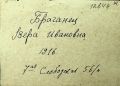 12644
Браганец
Вера Ивановна
1916
7ая Слободская 56/4